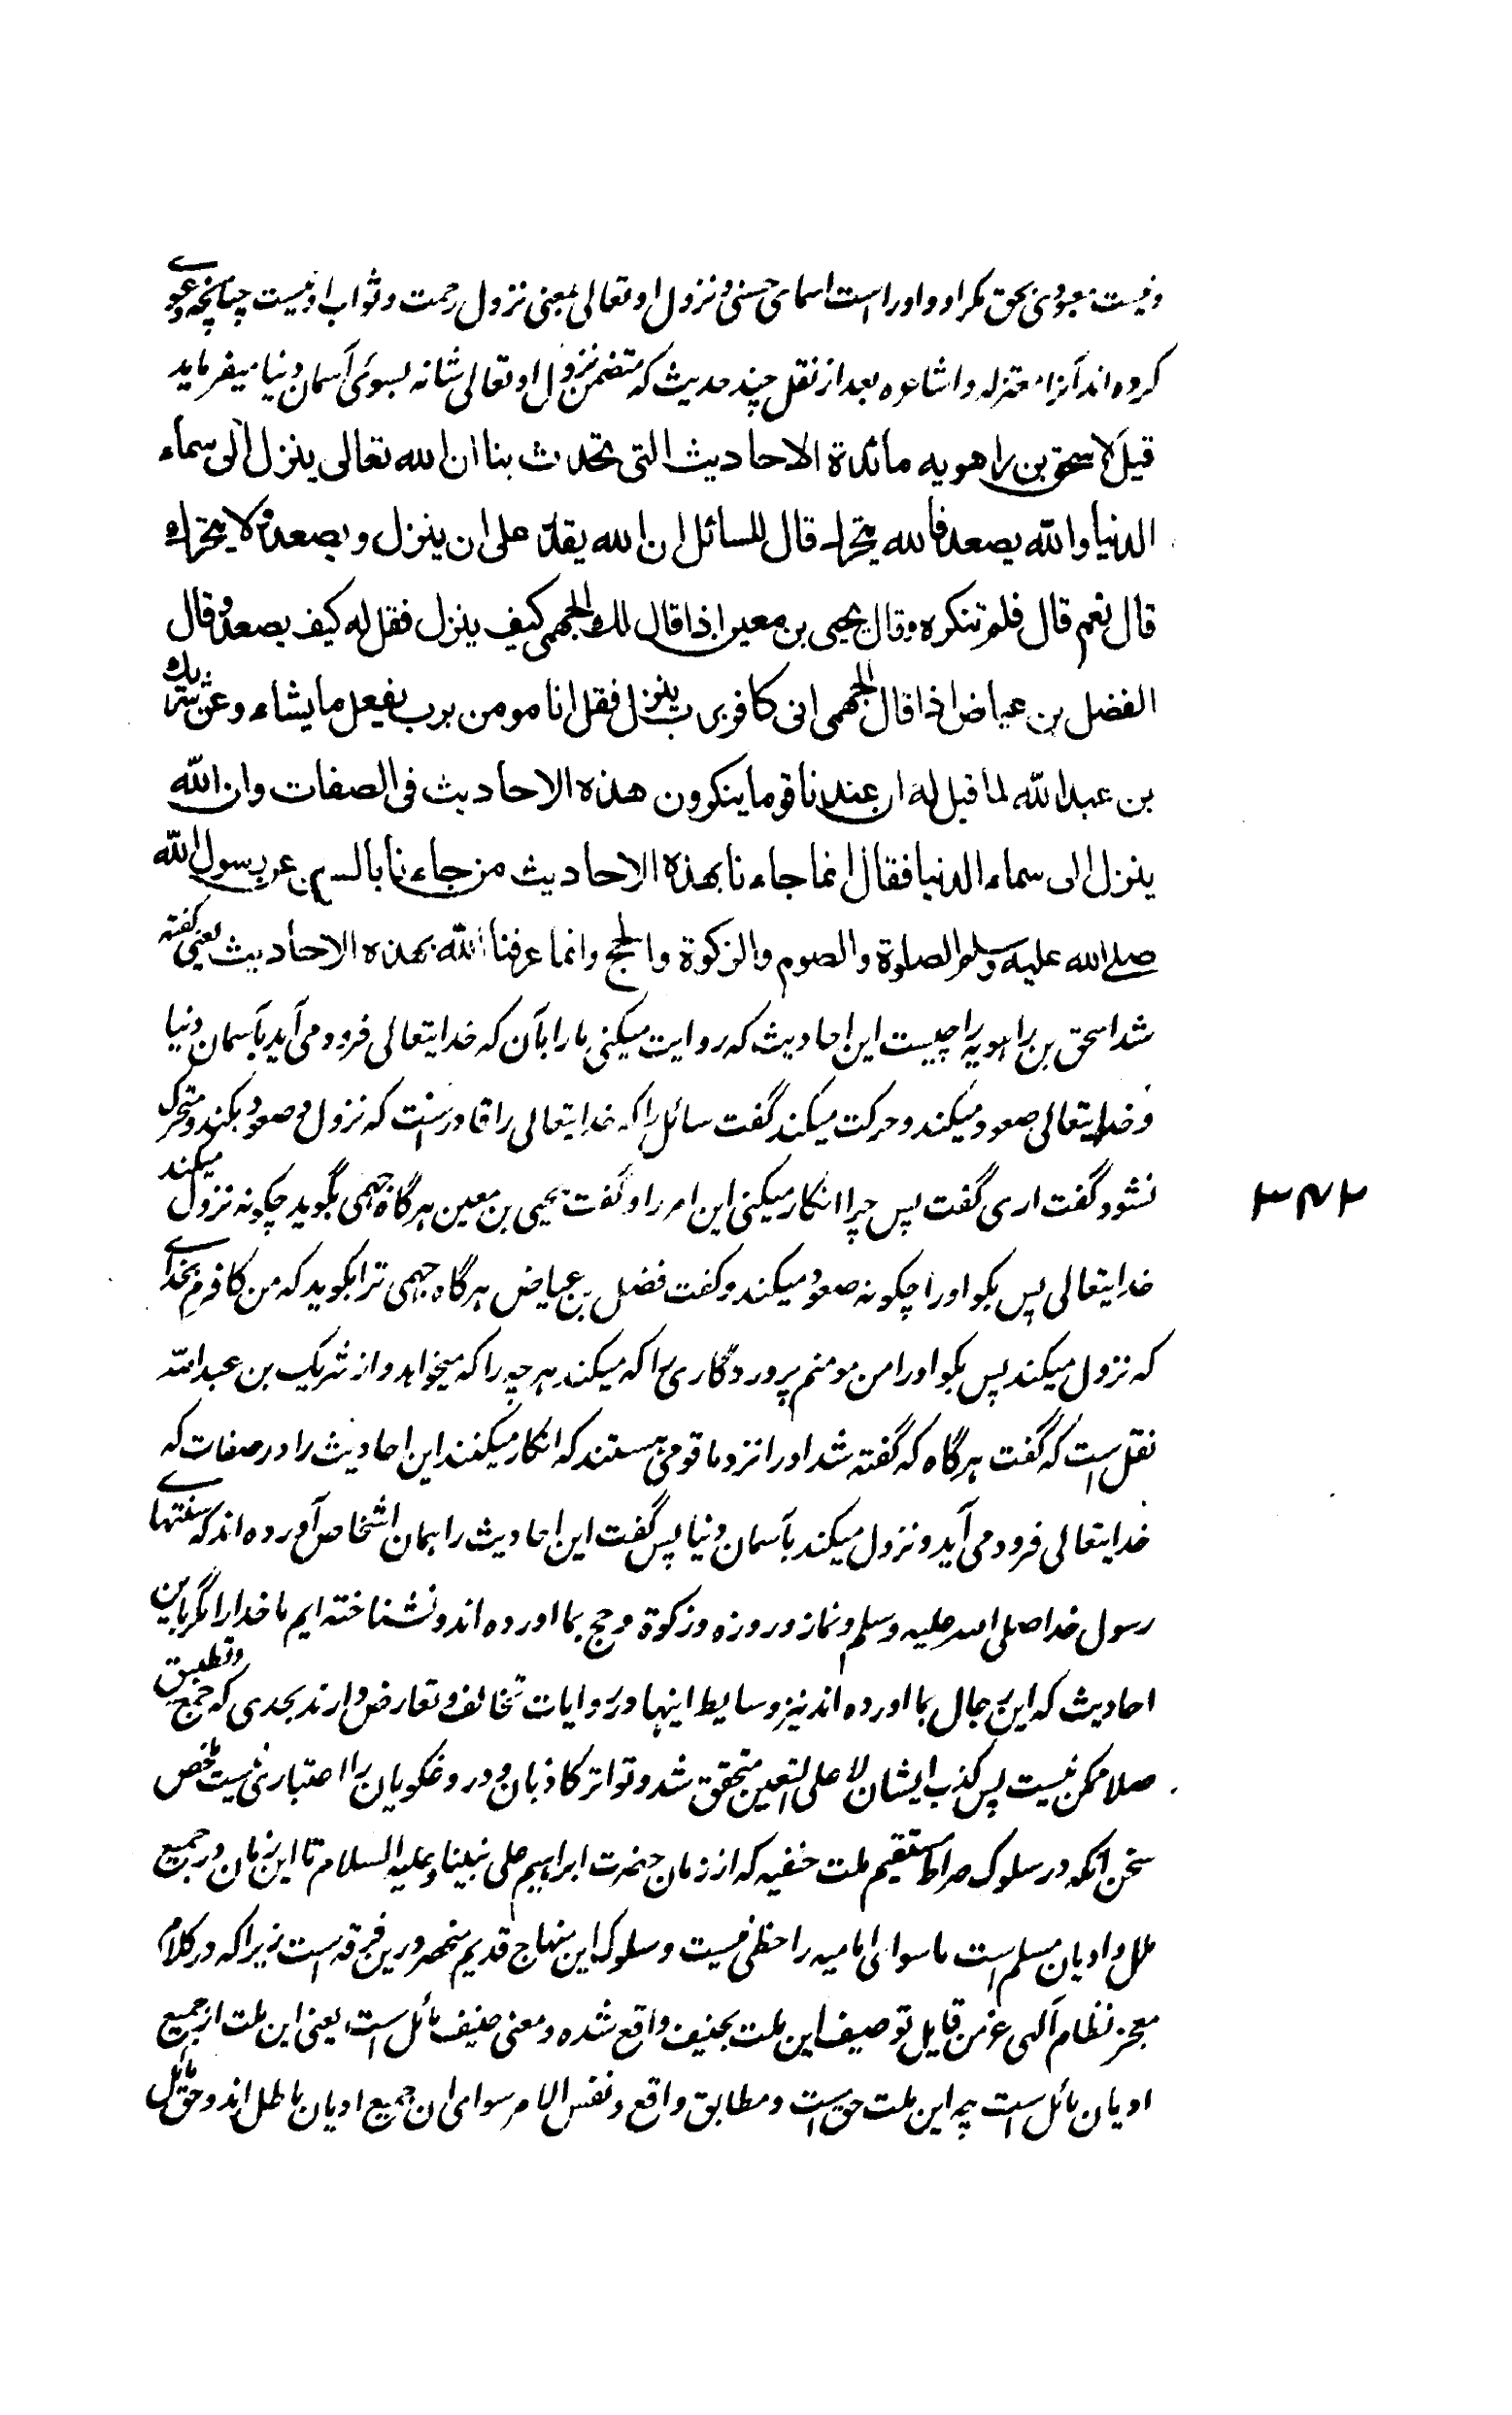 ونیست معبودی بحق مگر او و اورا است اسمای حسنی و نزول او تعالی بمعنی نزول رحمت و ثواب او نیست چنانچه دعوے
کرده اند آنرا معتزله و اشاعره بعد از نقل چند حدیث که متضمن نزول او تعالی شانه بسوی آسمان دنیا میفرماید
قیل لاسحق بن راهویه ما هذه الاحادیث التی تحدث بنا ان الله تعالی ینزل الی سماء
الدنیا والله یصعد فالله یتحرك قال للسائل ان الله یقدر علی ان ینزل و یصعد ولا یتحرك
قال نعم قال فلم تنکره وقال یحیی بن معین اذا قال لك الجهمی کیف ینزل فقل له کیف یصعد وقال
الفضل بن عیاض اذا قال الجهمی انی کافر برب ینزل فقل انا مومن برب یفعل ما یشاء وعن شریك
بن عبد الله لما قیل له ان عندنا قوما ینکرون هذه الاحادیث فی الصفات وان الله
ینزل الی سماء الدنیا فقال انما جاءنا بهذه الاحادیث من جاءنا بالسنن عن رسول الله
صلے الله علیه وسلم الصلوة والصوم والزکوة والحج وانما عرفنا الله بهذه الاحادیث یعنی گفته
شد اسحق بن راهویه را چیست این احادیث که روایت میکنی ما را بآن که خدایتعالی فرود می آید بآسمان دنیا
و خدایتعالی صعود میکند و حرکت میکند گفت سائل را که خدایتعالی را قادر است که نزول و صعود بکند و متحرک
نشود گفت اری گفت پس چرا انکار میکنی این امر را و گفت یحیی بن معین هرگاه جهمی بگوید چگونه نزول میکند
۳۴۲
خدایتعالی پس بگو اورا چگونه صعود میکند و گفت فضل بن عیاض هرگاه جهمی ترا بگوید که من کافرم بخداے
که نزول میکند پس بگو اورا من مومنم پروردگاری را که میکند هر چه را که میخواهد و از شریک بن عبد الله
نقل است که گفت هرگاه که گفته شد اورا نزد ما قومی هستند که انکار میکنند این احادیث را در صفات که
خدایتعالی فرود می آید و نزول میکند بآسمان دنیا پس گفت این احادیث را همان اشخاص آورده اند که سنتهاے
رسول خدا صلی الله علیه وسلم و نماز و روزه و زکوة و حج بما اورده اند و نشناخته ایم ما خدا را مگر باین
احادیث که این رجال بما اورده اند نیز وسایط اینها در روایات تخالف و تعارض دارند بحدی که جمع و تطبیق
صلا ممکن نیست پس کذب ایشان لا علی التعین متحقق شد و تواتر کاذبان و دروغگویان را اعتباری نیست ملخص
سخن انکه در سلوک صراط مستقیم ملت حنفیه که از زمان حضرت ابراهیم علی نبینا و علیه السلام تا این زمان در جمیع
ملل و ادیان مسلم است ماسوای امامیه را حظی نیست و سلوک این منهاج قدیم منحصر درین فرقه است زیرا که در کلام
معجز نظام آلهی عز من قایل توصیف این ملت بحنیف واقع شده و معنی حنیف مائل است یعنی این ملت از جمیع
ادیان مائل است چه این ملت حق است و مطابق واقع و نفس الامر سوای ان جمیع ادیان باطل اند و حق مائل